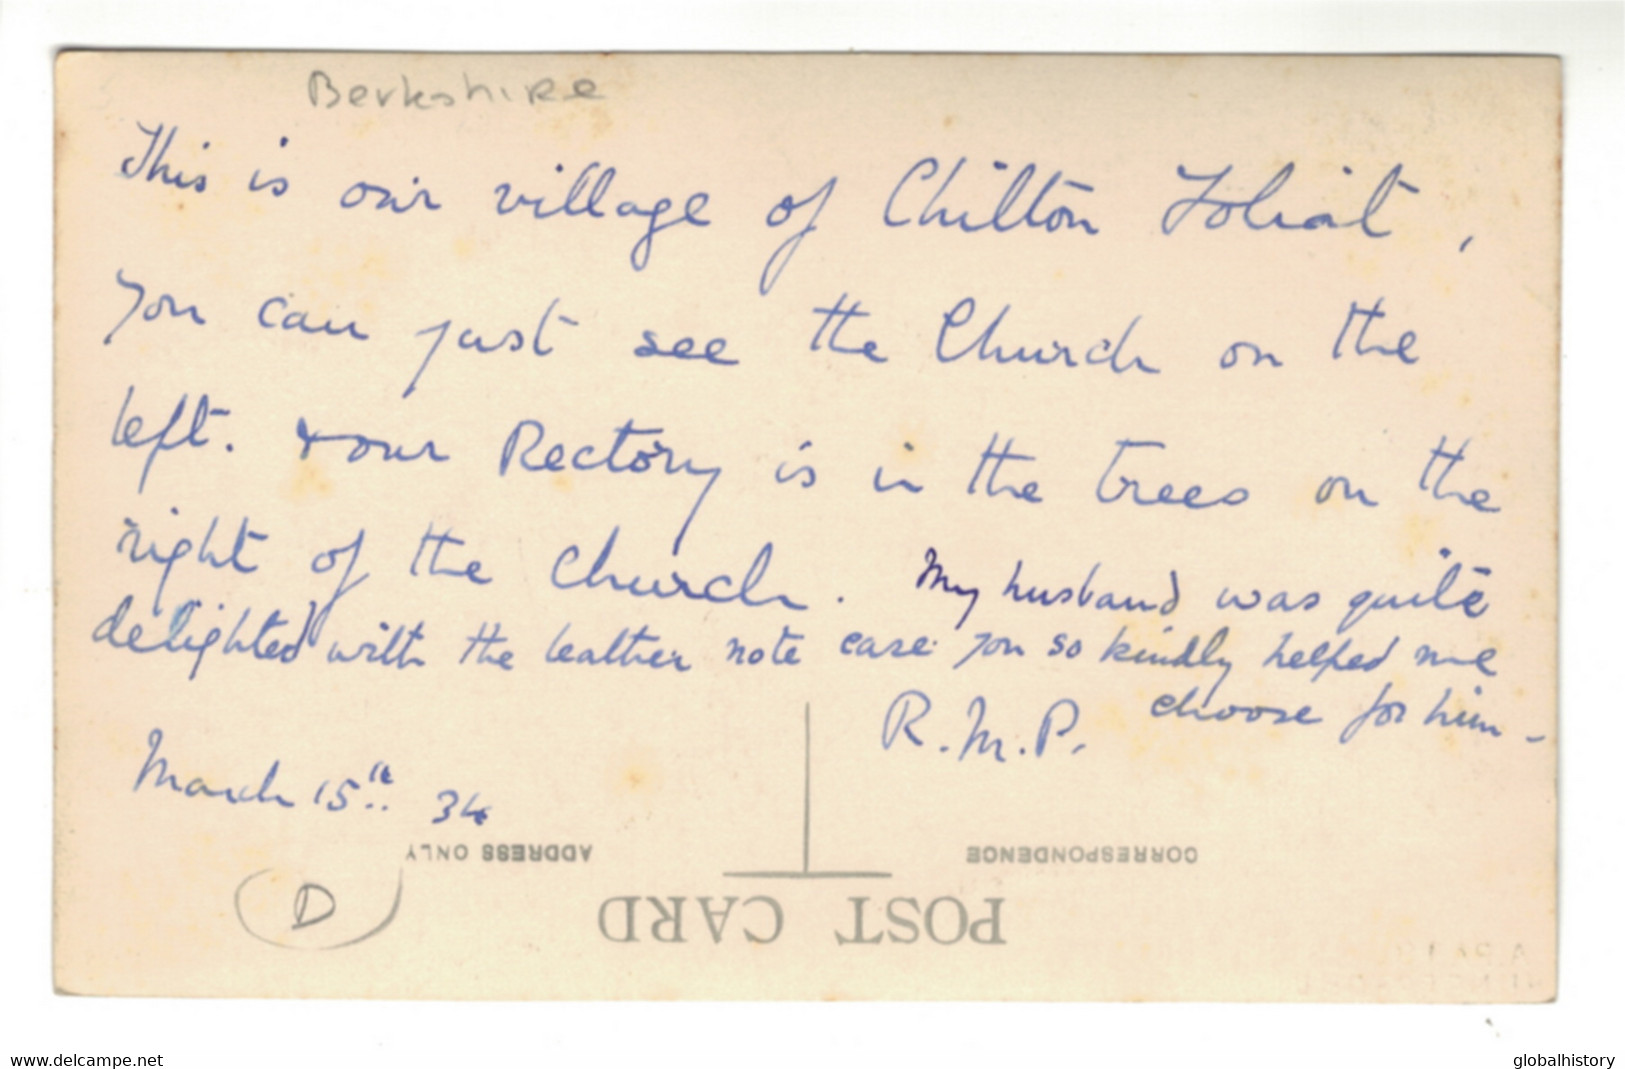 Berkshire
This is our village of Chilton Foliat,
you can just see the Church on the
left. + our Rectory is in the trees on the
right of the church. My husband was quite
delighted with the leather note case you so kindly helped me
choose for him -
R.M.P.
March 15th 34
ADDRESS ONLY
CORRESPONDENCE
POST CARD
D
www.delcampe.net
globalhistory